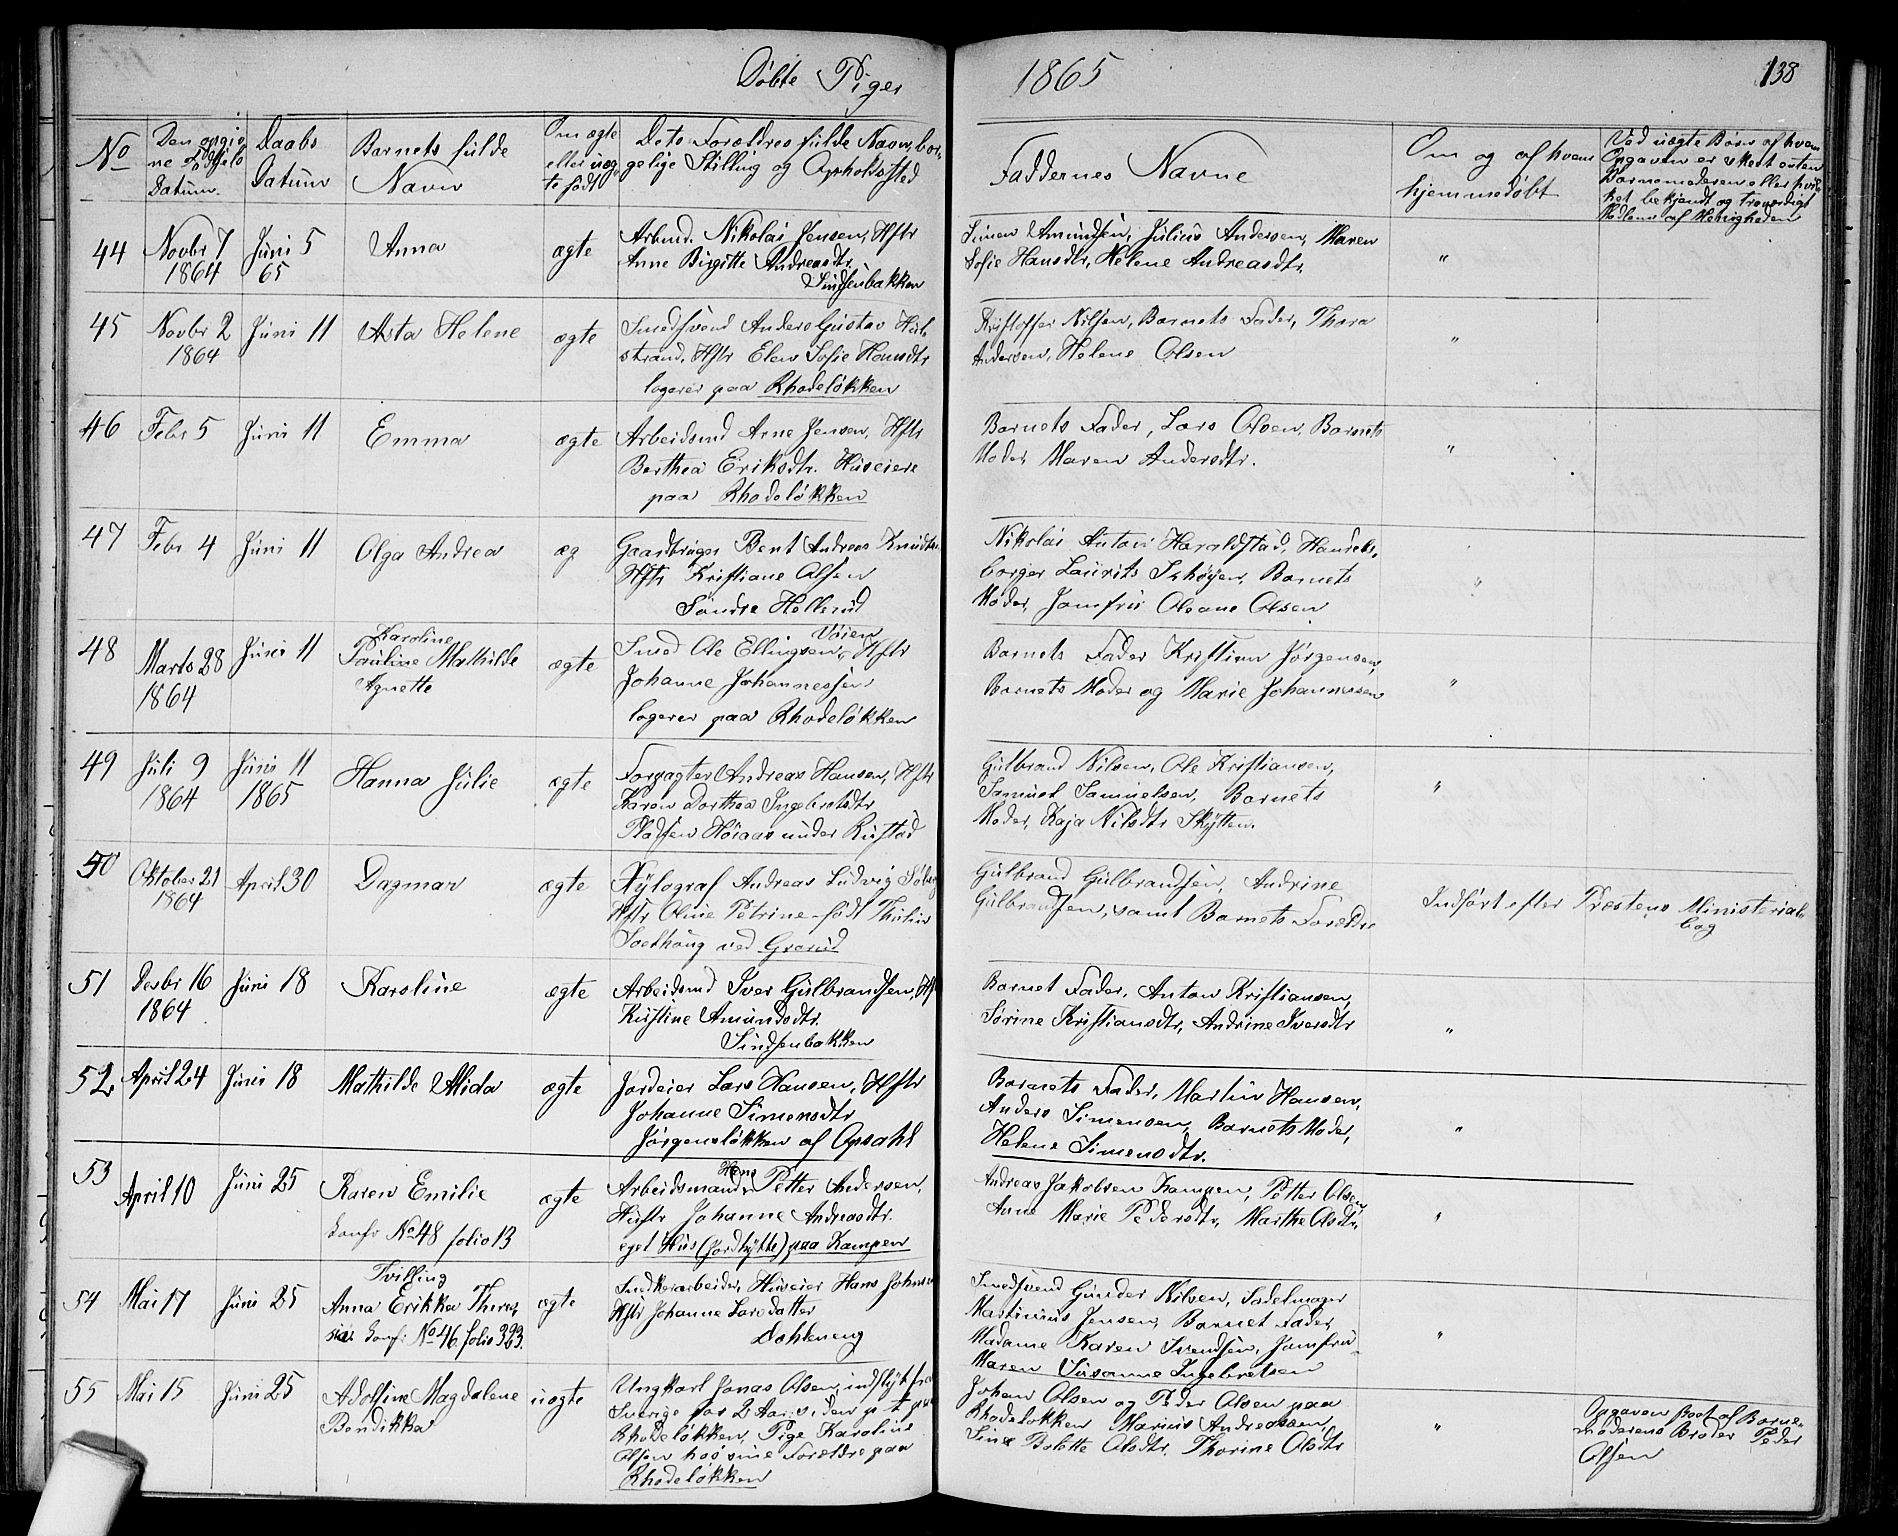 Døbte Piger
1865
138
No
Den opgivne Fødsels Datum.
Daabs Datum
Barnets fulde Navn
Om ægte eller uægte født
Dets Forældres fulde Navn, borgelige Stilling og Opholdssted
Faddernes Navne
Om og af hvem hjemmedøbt
Ved uægte Børn af hvem Opgaven er skeet enten Barnemoderen eller hvilket bekjendt og troværdigt Medlem af Menigheden
44
Novbr 7
1864
Juni 5
65
Anna
ægte
Arbmd. Nikolai Jensen, Hstr
Anne Birgitte Andreasdtr,
Sindsenbakken
Simen Amundsen, Julius Andersen, Maren
Sofie Hansdtr, Helene Andreasdtr.
"
45
Novbr 2
1864
Juni 11
Asta Helene
ægte
Smedsvend Anders Gustav Hul-
strand, Hstr Elen Sofie Hansdtr
logerer paa Rhodeløkken
Kristoffer Nilsen, Barnets Fader, Thora
Andersen, Helene Olsen
"
46
Febr 5
Juni 11
Emma
ægte
Arbeidsmd Arne Jensen, Hstr
Berthea Eriksdtr. Huseiere
paa Rhodeløkken
Barnets Fader, Lars Olsen, Barnets
Moder, Maren Andersdtr.
"
47
Febr 4
Juni 11
Olga Andrea
æg
Gaardbruger Bent Andreas
Hstr Kristiane Olsen
Søndre Hellerud
Nikolai Anton Haraldstad, Handels-
borger Laurits Schøyen, Barnets
Moder, Jomfru Oleane Olsen
"
48
Marts 28
1864
Juni 11
Karoline
Pauline Mathilde
Agnette
ægte
Vøien
Smed Ole Ellingsen, Hstr
Johanne Johannessen
logerer paa Rhodeløkken
Barnets Fader Kristian Jørgensen,
Barnets Moder og Marie Johannessen
"
49
Juli 9
1864
Juni 11
1865
Hanna Julie
ægte
Forpagter Andreas Hansen, Hstr
Karen Dorthea Ingebretsdtr
Pladsen Høiaas under Rustad
Gulbrand Nilsen, Ole Kristiansen,
Samuel Samuelsen, Barnets
Moder, Kaja Nilsdtr Skytten.
"
50
Oktober 21
1864
April 30
Dagmar
ægte
Xylograf Andreas Ludvig
Hstr Oline Petrine født
ved Grorud
Gulbrand Gulbrandsen, Andrine
Gulbrandsen, samt Barnets Forældre
Indført efter Præstens Ministerial-
bog
51
Desbr 16
1864
Juni 18
Karoline
ægte
Arbeidsmd Iver Gulbrandsen, Hst
Kristine Amundsdtr.
Sindsenbakken
Barnet Fader, Anton Kristiansen,
Sørine Kristiansdtr, Andrine Iversdtr
"
52
April 24
Juni 18
Mathilde Alida
ægte
Jordeier Lars Hansen, Hstr
Johanne Simensdtr
Jørgensløkken af Opsahl
Barnets Fader, Martin Hansen,
Anders Simensen, Barnets Moder,
Helene Simensdtr.
"
53
April 10
Juni 25
Karen Emilie
Konfr No 48 folio 13
ægte
Hans
Arbeidsmand Petter Andersen,
Hustr Johanne Andreasdtr.
eget Hus (Jordhytte) paa Kampen
Andreas Jakobsen Kampen, Petter Olsen,
Anne Marie Pedersdtr, Marthe Olsdtr,
"
54
Mai 17
Juni 25
Tvilling
Anna Erikka There-
sia. Konf: No 46. folio 323.
ægte
Snedkerarbeider, Huseier Hans Johnsen
Hstr Johanne Larsdatter
Dahleneng
Smedsvend Gunder Nilsen, Sadelmager
Martinius Jensen, Barnet Fader,
Madame Karen Svendsen, Jomfru
Maren Susanne Ingebretsen
"
55
Mai 15
Juni 25
Adolfine Magdalene
Bendikka
uægte
Ungkarl Jonas Olsen, indflyt fra
Sverige for 2 Aar siden
Rhodeløkken, Pige Karoline
Olsen hos sine Forældre paa
Rhodeløkken
Johan Olsen og Peder Olsen paa
Rhodeløkken Marius Andreasen,
Sina Bolette Olsdtr, Thorine Olsdtr
"
Opgaven skeet af Barne-
moderens Broder Peder
Olsen